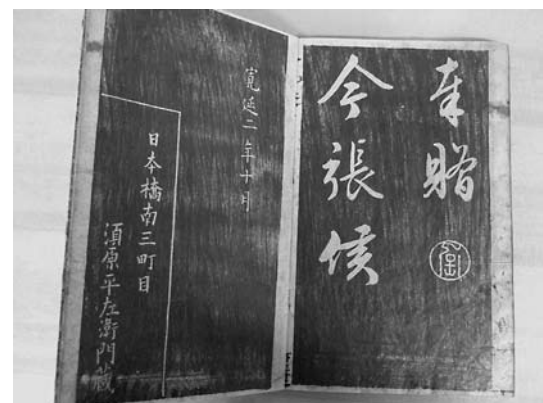 奉贈
今張侯
寛延二年十月
日本橋南三町目
湏原平左衛門藏